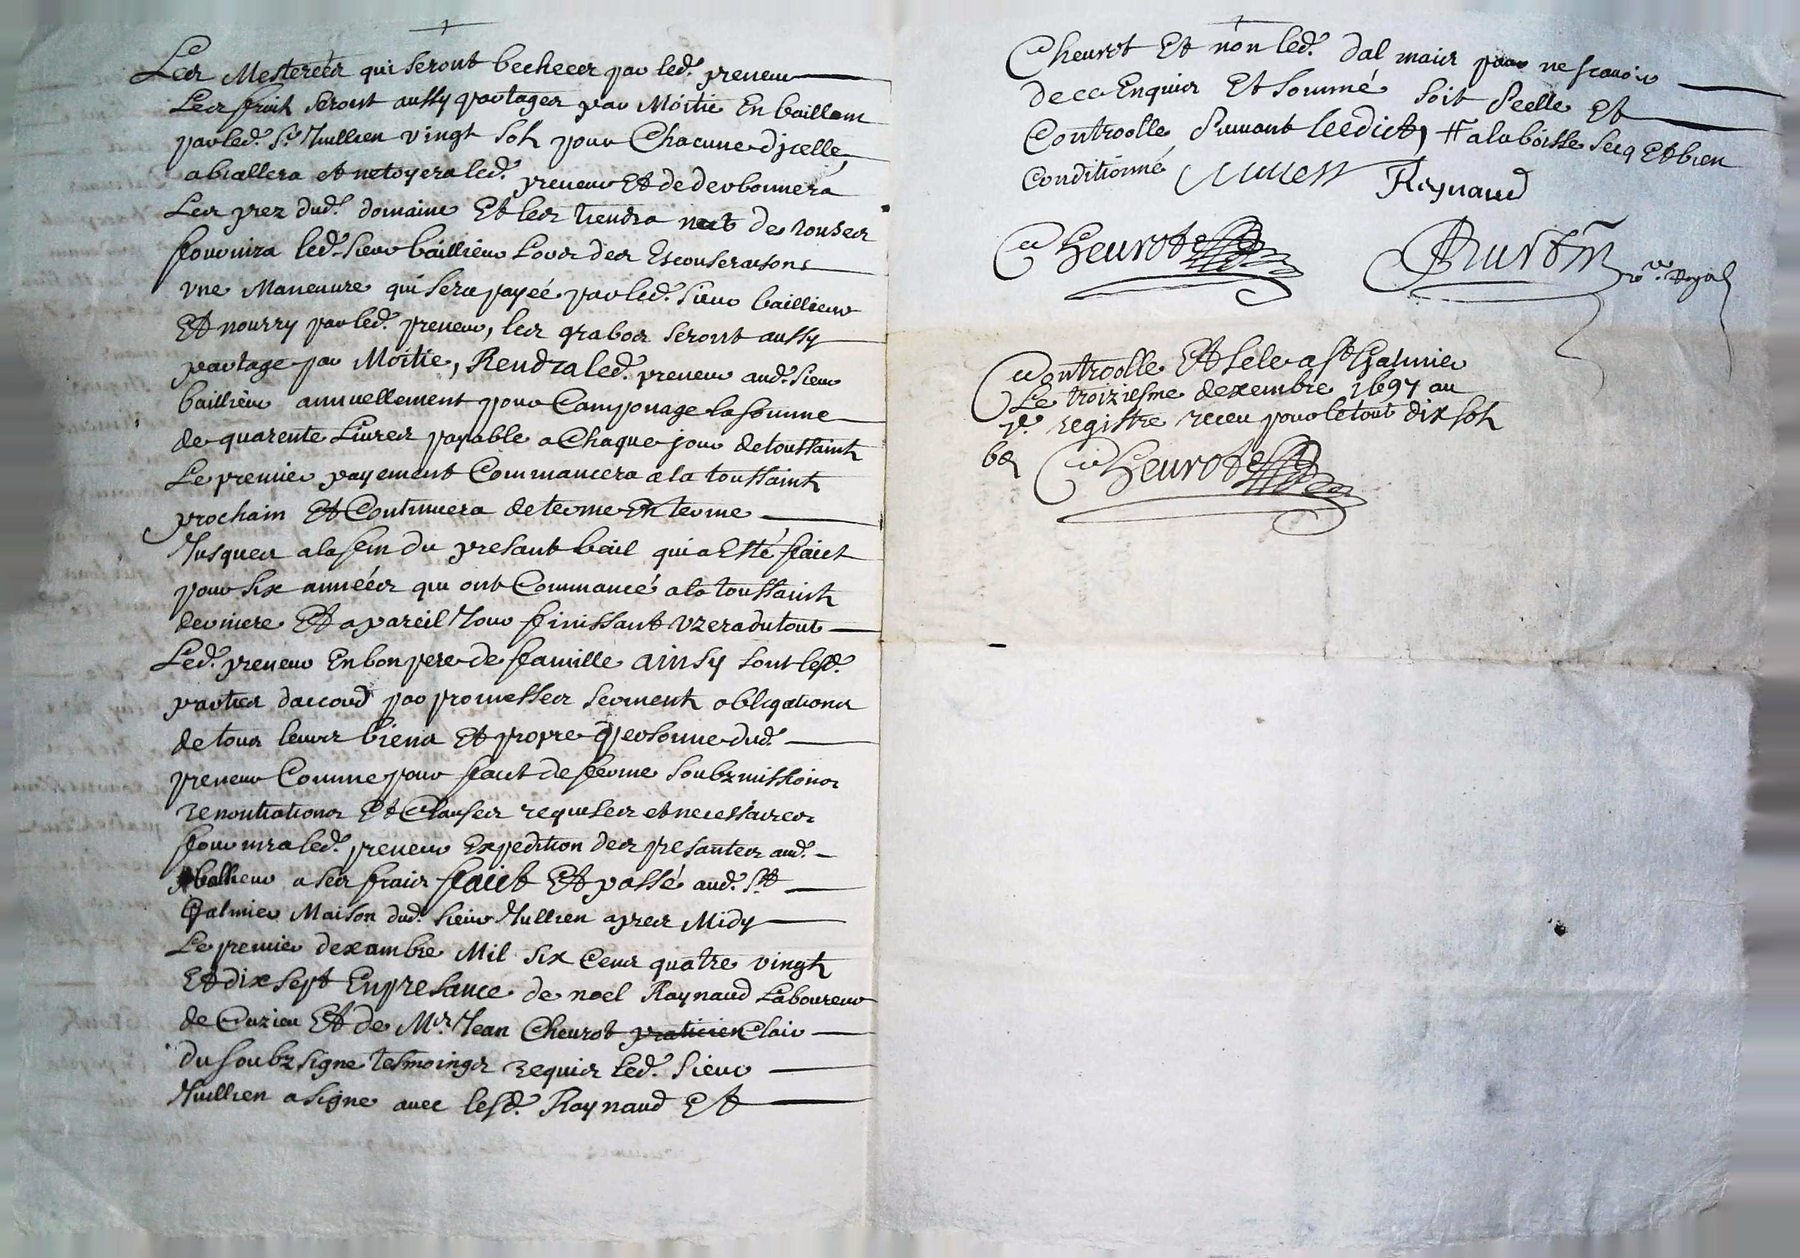 Les Mesterées qui seront bechées par led. preneur
Les fruit seront aussy partages par Moitie En baillant
par led. Sr. Jullien vingt sols pour Chacune d'jcelle
abiallera et netoyera led. preneur Et de
Les prez dud. domaine Et les tiendra net de ronses
fournira led. sieur baillieur Lors des
vne Maneuure qui sera payeé par led. sieur baillieur
Et nourry par led. preneur, les grabos seront aussy
partage par Moitie, Rendra led. preneur aud. sieur
baillieur annuellement pour Camponage la somme
de quarente Liures payable a Chaque jour de toussaints
Le premier payement Commancera a la toussaints
prochain Et Continuera de terme En terme
Jusques a la fein du presant bail qui a Esté faict
pour six annéés qui ont Commancé a la toussaints
derniere Et a pareil Jour finissant vzera du tout
Led. preneur En bon pere de famille ainsy sont lesd.
parties daccord par promesses serments obligations
de tous leurs biens Et propre personne dud.
preneur Comme pour faict de ferme soubzmissions
renontiations Et Clauses requises et necessaires
fournira led. preneur Expedition des presantes aud.
ballieur a ses frais faict Et passé aud. St
Galmier Maison dud. sieur Jullien apres Midy
Le premier dexambre Mil six Cens quatre vingts
Et dix sept En presance de noel Raynaud Laboureur
de Cuzieu Et de Mr. Jean Cheurot praticien Clair
du soubzsigne tesmoings requis led. sieur
Jullien a signe auec lesd. Raynaud Et
Cheurot Et non led. dal mais pour ne scauoir
de ce Enquis Et sommé soit seelle Et
Controolle suiuant leedict, # a la boisse secq Et bien
Conditionné Jullien Reynaud
Cheurot
royal
Controolle Et sele a St Galmier
Le troiziesme dexembre 1697 au
registre receu pour le tout dix sols
6d Cheurot